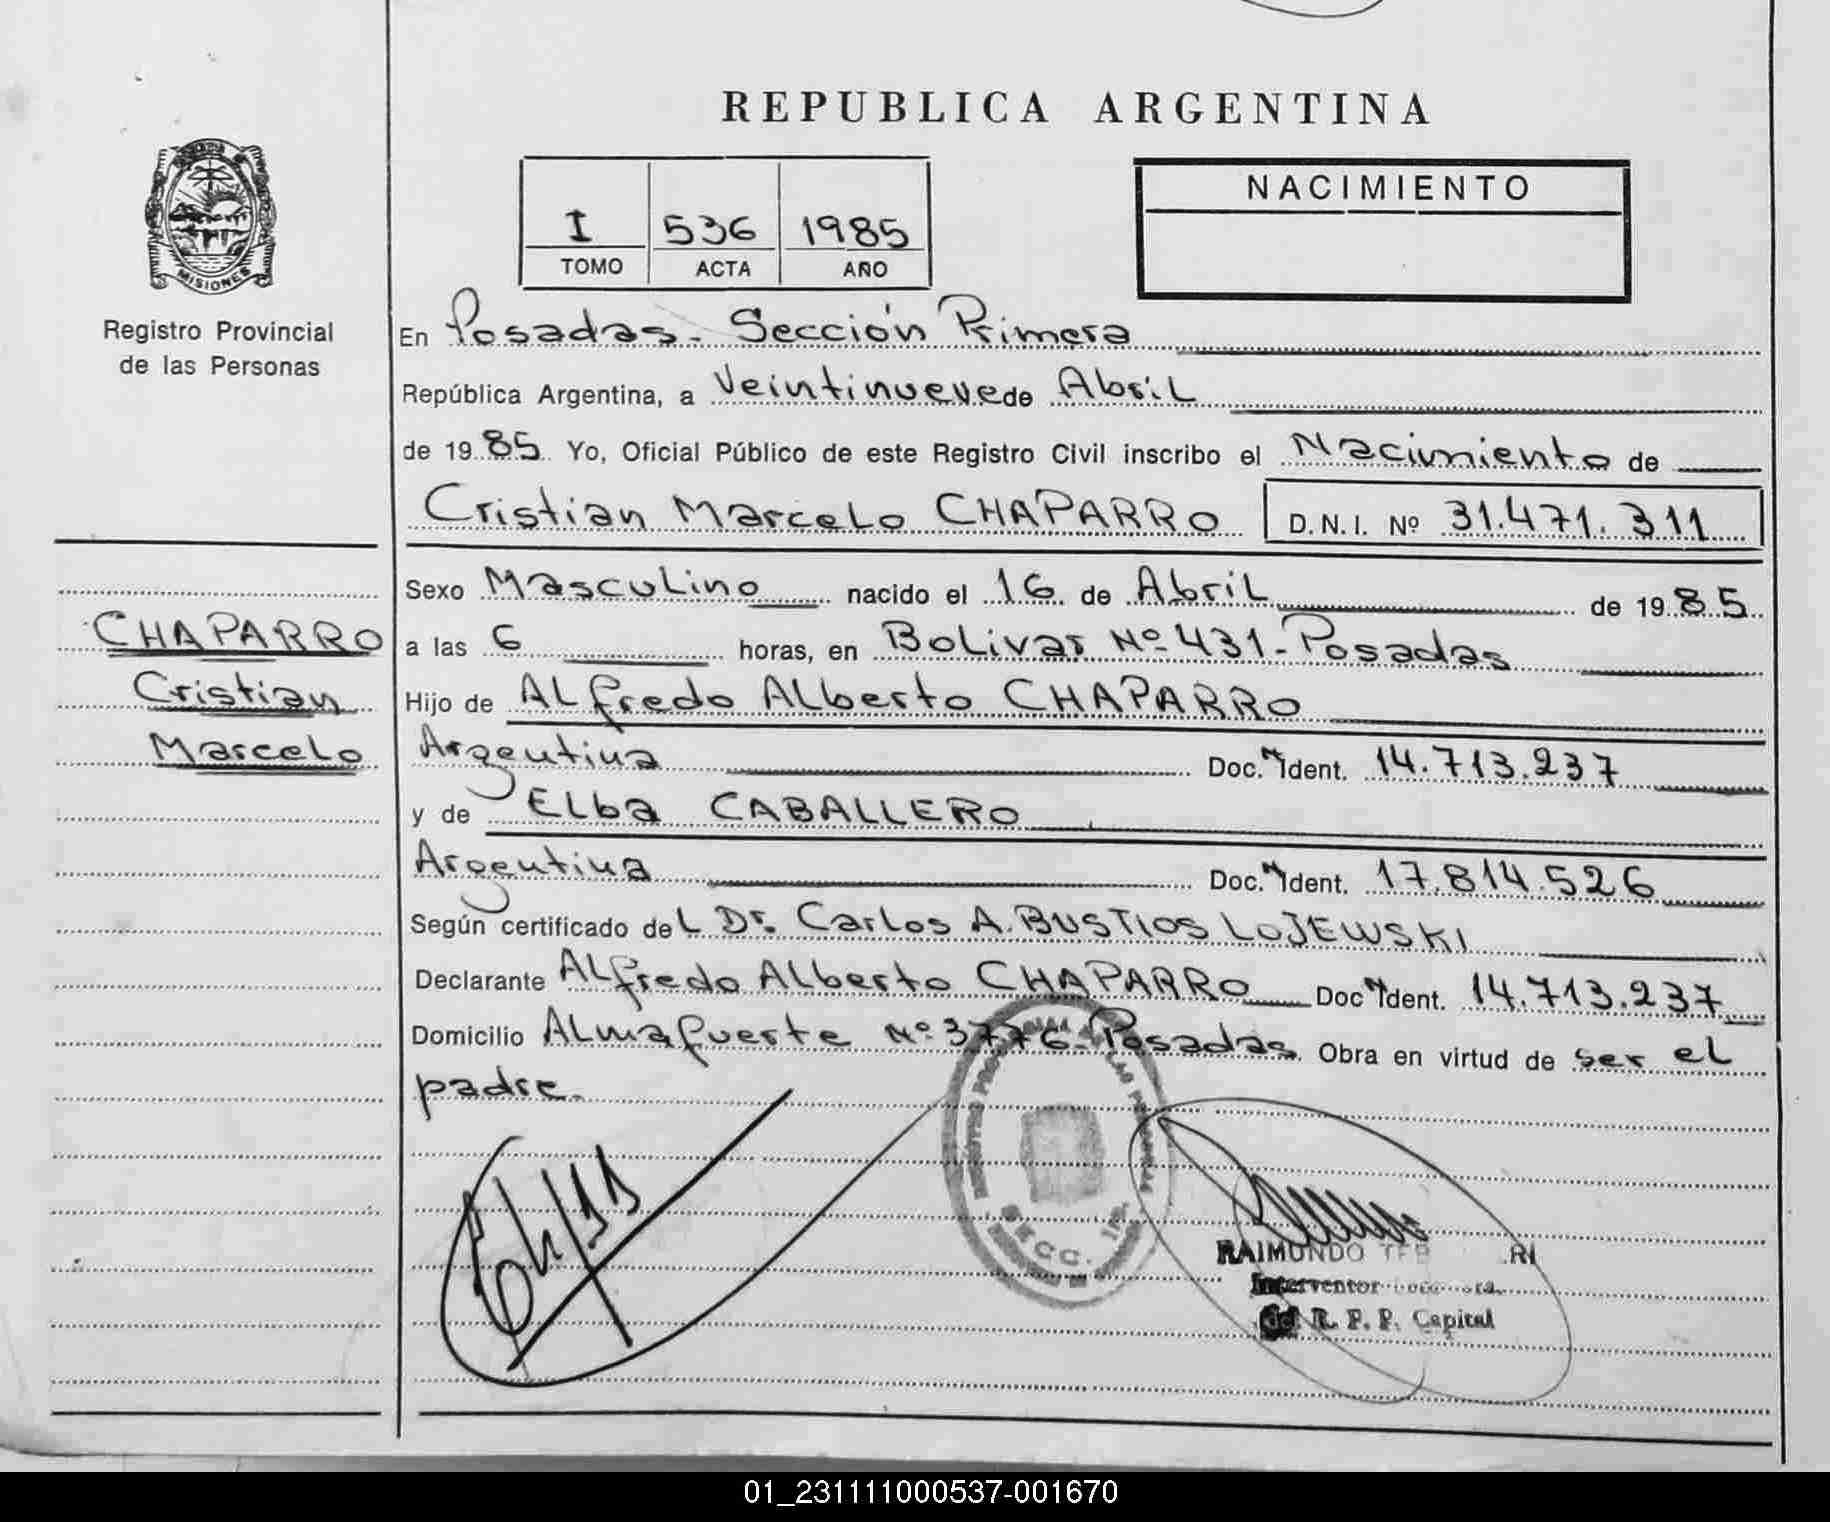 REPUBLICA ARGENTINA
MISIONES
Registro Provincial
de las Personas
I 536 1985
TOMO ACTA AÑO
NACIMIENTO
En Posadas - Sección Primera
República Argentina, a Veintinueve de Abril
de 1985 Yo, Oficial Público de este Registro Civil inscribo el Nacimiento de
Cristian Marcelo CHAPARRO D.N.I. Nº 31.471.311
Sexo Masculino nacido el 16 de Abril de 1985
a las 6 horas, en Bolivar Nº 431 - Posadas
Hijo de Alfredo Alberto CHAPARRO
Argentina Doc. Ident. 14.713.237
y de Elba CABALLERO
Argentina Doc. Ident. 17.814.526
Según certificado del Dr. Carlos A. BUSTIOS LOJEWSKI
Declarante Alfredo Alberto CHAPARRO Doc Ident. 14.713.237
Domicilio Almafuerte Nº 3776 - Posadas. Obra en virtud de ser el
padre.
CHAPARRO
Cristian
Marcelo
SECC. 1a.
RAIMUNDO
Interventor
del R. P. P. Capital
01_231111000537-001670